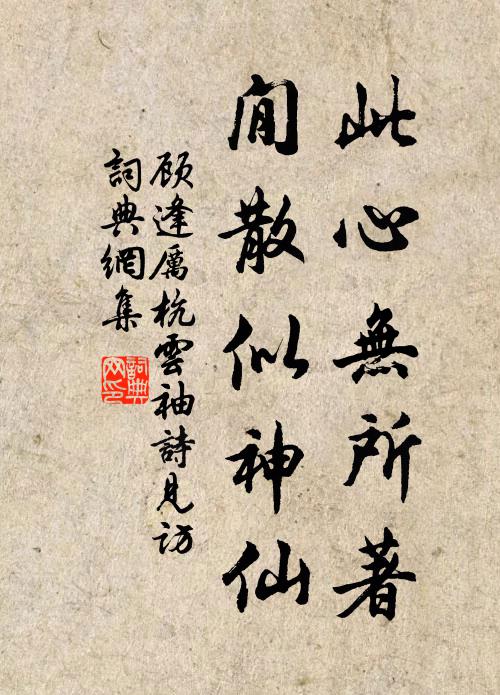 此心無所著
閒散似神仙
顾逢厲杭雲袖詩見訪
詞典網集
詞典網印